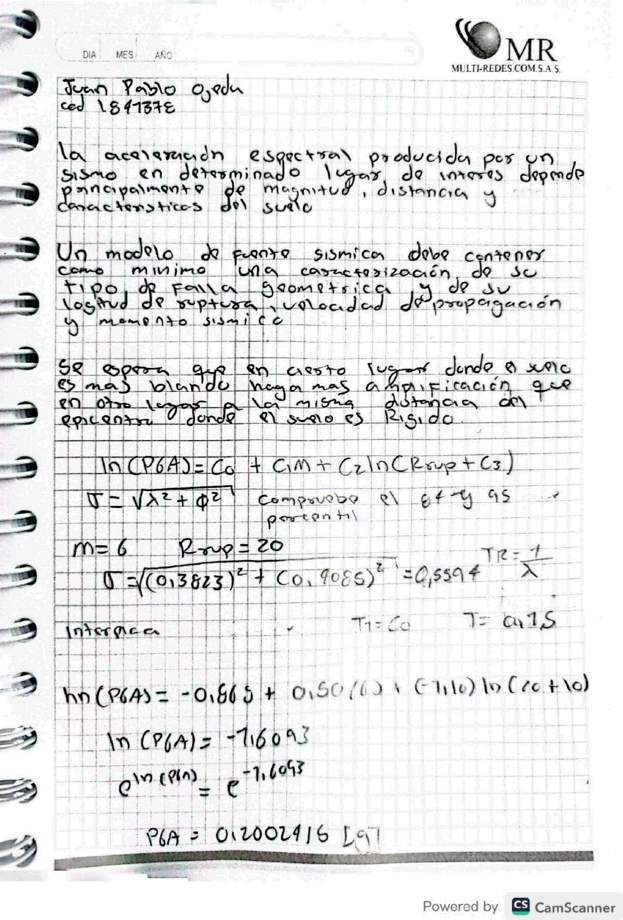 DIA MES AÑO
MR
MULTI-REDES.COM.S.A.S.
Juan Pablo Ojeda
cod 1841378
la aceleración espectral producida por un
sismo en determinado lugar de interes depende
principalmente de magnitud, distancia y
caracteristicas del suelo
Un modelo de fuente sismica debe contener
como minimo una caracterización de su
tipo de falla geometrica y de su
logitud de ruptura, velocidad de propagación
y momento sismico
Se espera que en cierto lugar donde el suelo
es mas blando haga mas amplificación que
en otro lugar a la misma distancia del
epicentro donde el suelo es Rigido.
ln(PGA) = C0 + C1M + C2 ln(Rrup + C3)
σ = √λ² + φ² compruebe el 84 y 95
percentil
m = 6 Rrup = 20
σ = √(0,3823)² + (0,4085)² = 0,5594 TR = 1/λ
Interpica T1 = C0 T = 0,75
ln(PGA) = -0,865 + 0,50(6) + (-1,10) ln(20+10)
ln(PGA) = -1,6093
e^ln(PGA) = e^-1,6093
PGA = 0,2002916 [g]
Powered by CS CamScanner